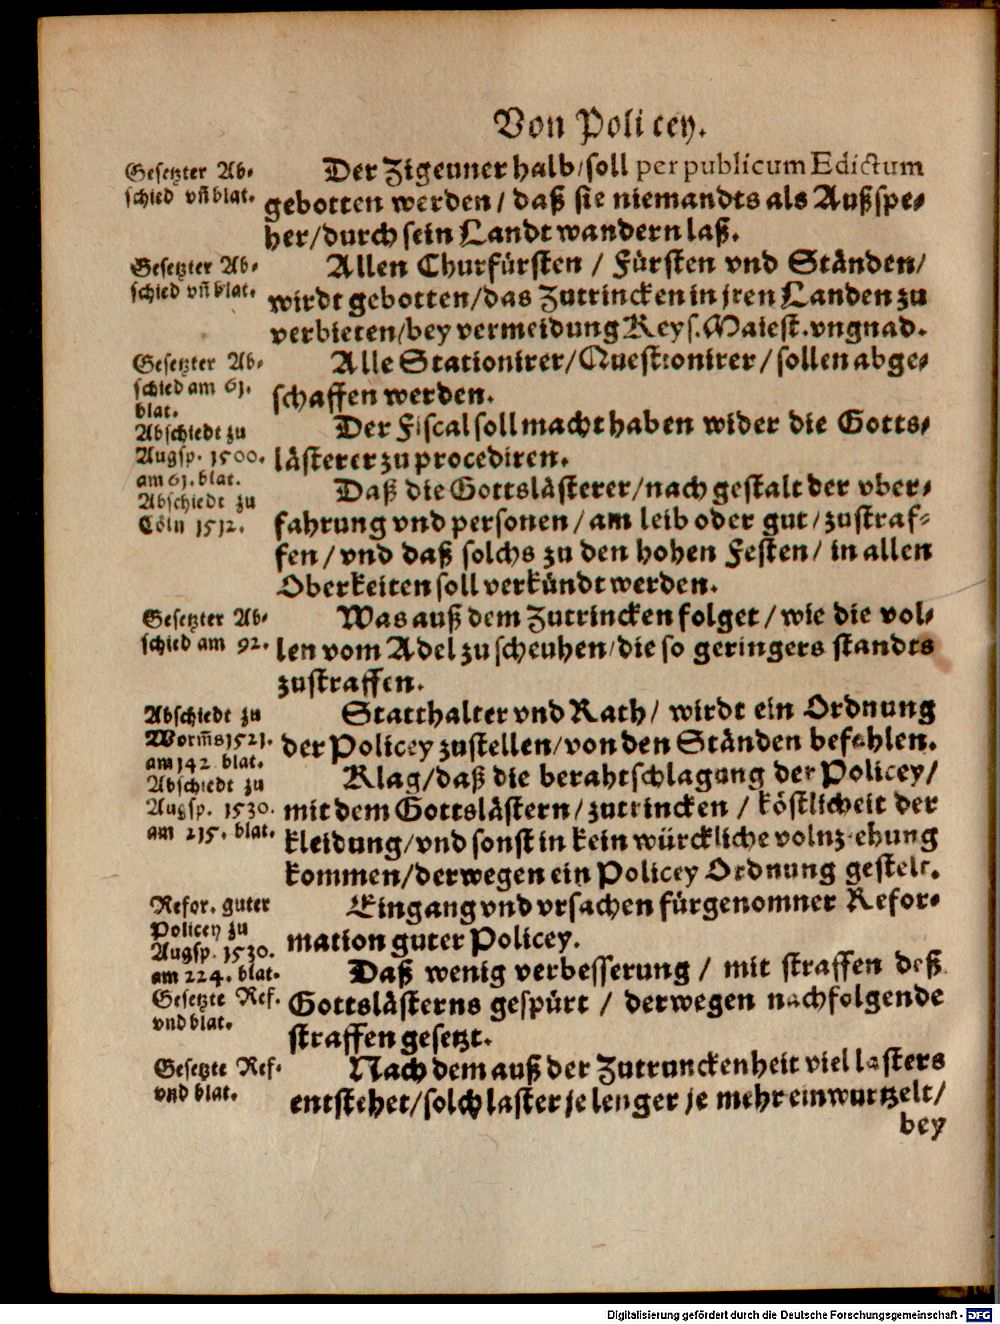 Von Policey.
Gesetzter Ab-
schied vn̄ blat.
Der Zigeuner halb/soll per publicum Edictum
gebotten werden / daß sie niemandts als Außspe-
her/durch sein Landt wandern laß.
Gesetzter Ab-
schied vn̄ blat.
Allen Churfürsten / Fürsten vnd Ständen/
wirdt gebotten/das Zutrincken in jren Landen zu
verbieten/bey vermeidung Keys. Maiest. vngnad.
Gesetzter Ab-
schied am 61.
blat.
Alle Stationirer/Questionirer/sollen abge-
schaffen werden.
Abschiedt zu
Augsp. 1500.
am 61. blat.
Der Fiscal soll macht haben wider die Gotts-
lästerer zu procediren.
Abschiedt zu
Cöln 1512.
Daß die Gottslästerer/nach gestalt der vber-
fahrung vnd personen / am leib oder gut/zustraf-
fen / vnd daß solchs zu den hohen Festen / in allen
Oberkeiten soll verkündt werden.
Gesetzter Ab-
schied am 92.
Was auß dem Zutrincken folget / wie die vol-
len vom Adel zu scheuhen/die so geringers standts
zustraffen.
Abschiedt zu
Worm̄s 1521.
am 142 blat.
Statthalter vnd Rath/ wirdt ein Ordnung
der Policey zustellen/von den Ständen befehlen.
Abschiedt zu
Augsp. 1530.
am 215. blat.
Klag/daß die berahtschlagung der Policey/
mit dem Gottslästern/zutrincken / köstlicheit der
kleidung/vnd sonst in kein würckliche volnziehung
kommen/derwegen ein Policey Ordnung gestelt.
Refor. guter
Policey zu
Augsp. 1530.
am 224. blat.
Eingang vnd vrsachen fürgenomner Refor-
mation guter Policey.
Gesetzte Ref.
vnd blat.
Daß wenig verbesserung / mit straffen deß
Gottslästerns gespürt / derwegen nachfolgende
straffen gesetzt.
Gesetzte Ref.
vnd blat.
Nach dem auß der Zutrunckenheit viel lasters
entstehet/solch laster je lenger je mehr einwurtzelt/
bey
Digitalisierung gefördert durch die Deutsche Forschungsgemeinschaft - DFG